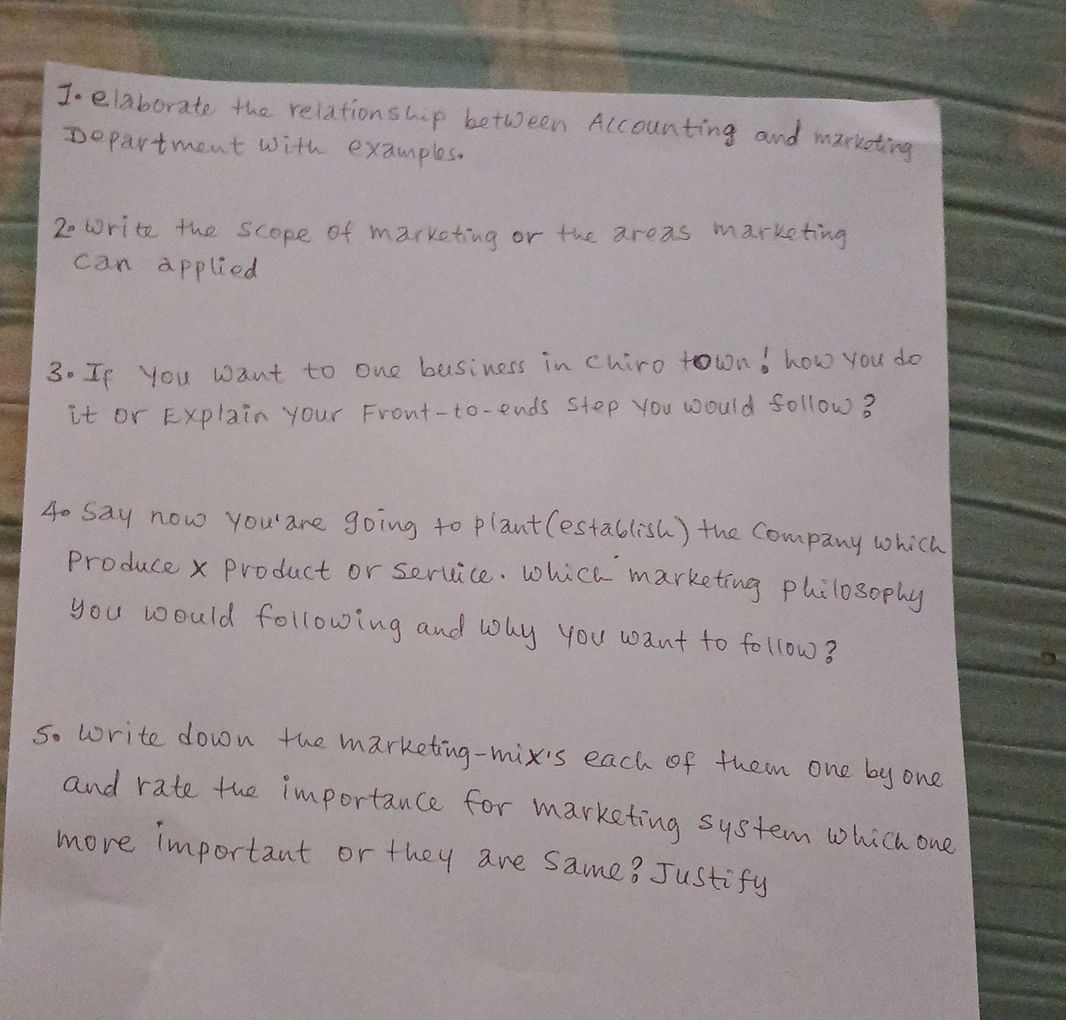 1. elaborate the relationship between Accounting and marketing
Department with examples.
2. Write the scope of marketing or the areas marketing
can applied
3. If you want to one business in Chiro town! how you do
it or Explain your Front-to-ends step you would follow?
4. Say now you'are going to plant(establish) the Company which
Produce x product or service. Which marketing philosophy
you would following and why you want to follow?
5. Write down the marketing-mix's each of them one by one
and rate the importance for marketing system which one
more important or they are Same? Justify